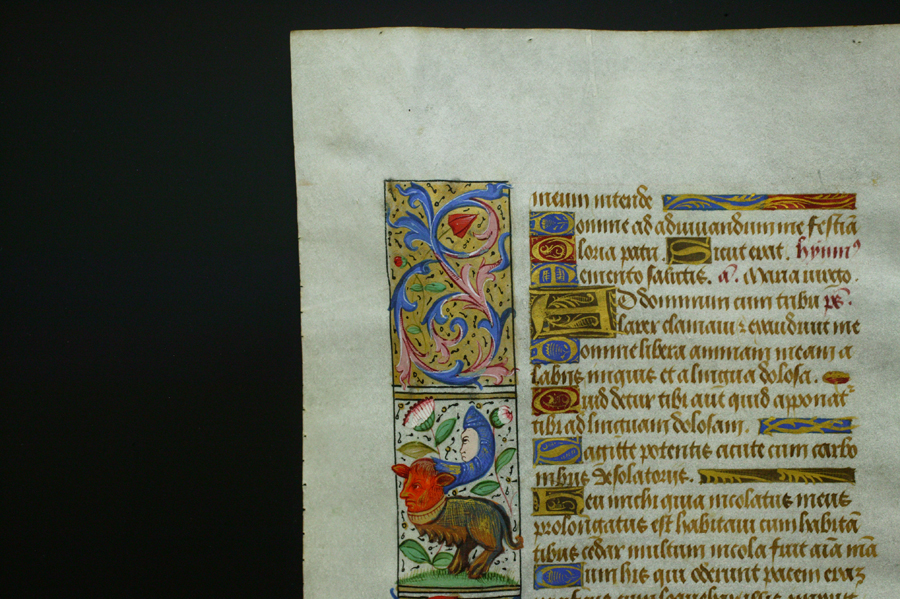 meum intende
Domine ad adiuvandum me festiā
Gloria patri. Sicut erat. hymn⁹
Memento salutis. a͞. Maria uirgo.
AD dominum cum tribu ps̄.
larer clamaui: ⁊ exaudiuit me
Domine libera animam meam a
labiis iniquis et a lingua dolosa.
Quid detur tibi aut̄ quid apponat᷑
tibi ad linguam dolosam.
Sagitte potentis acute cum carbo
nibus desolatoriis.
Heu michi quia incolatus meus
prolongatus est habitaui cum habitā
tibus cedar multum incola fuit aīa mā
Cum his qui oderunt pacem eraz